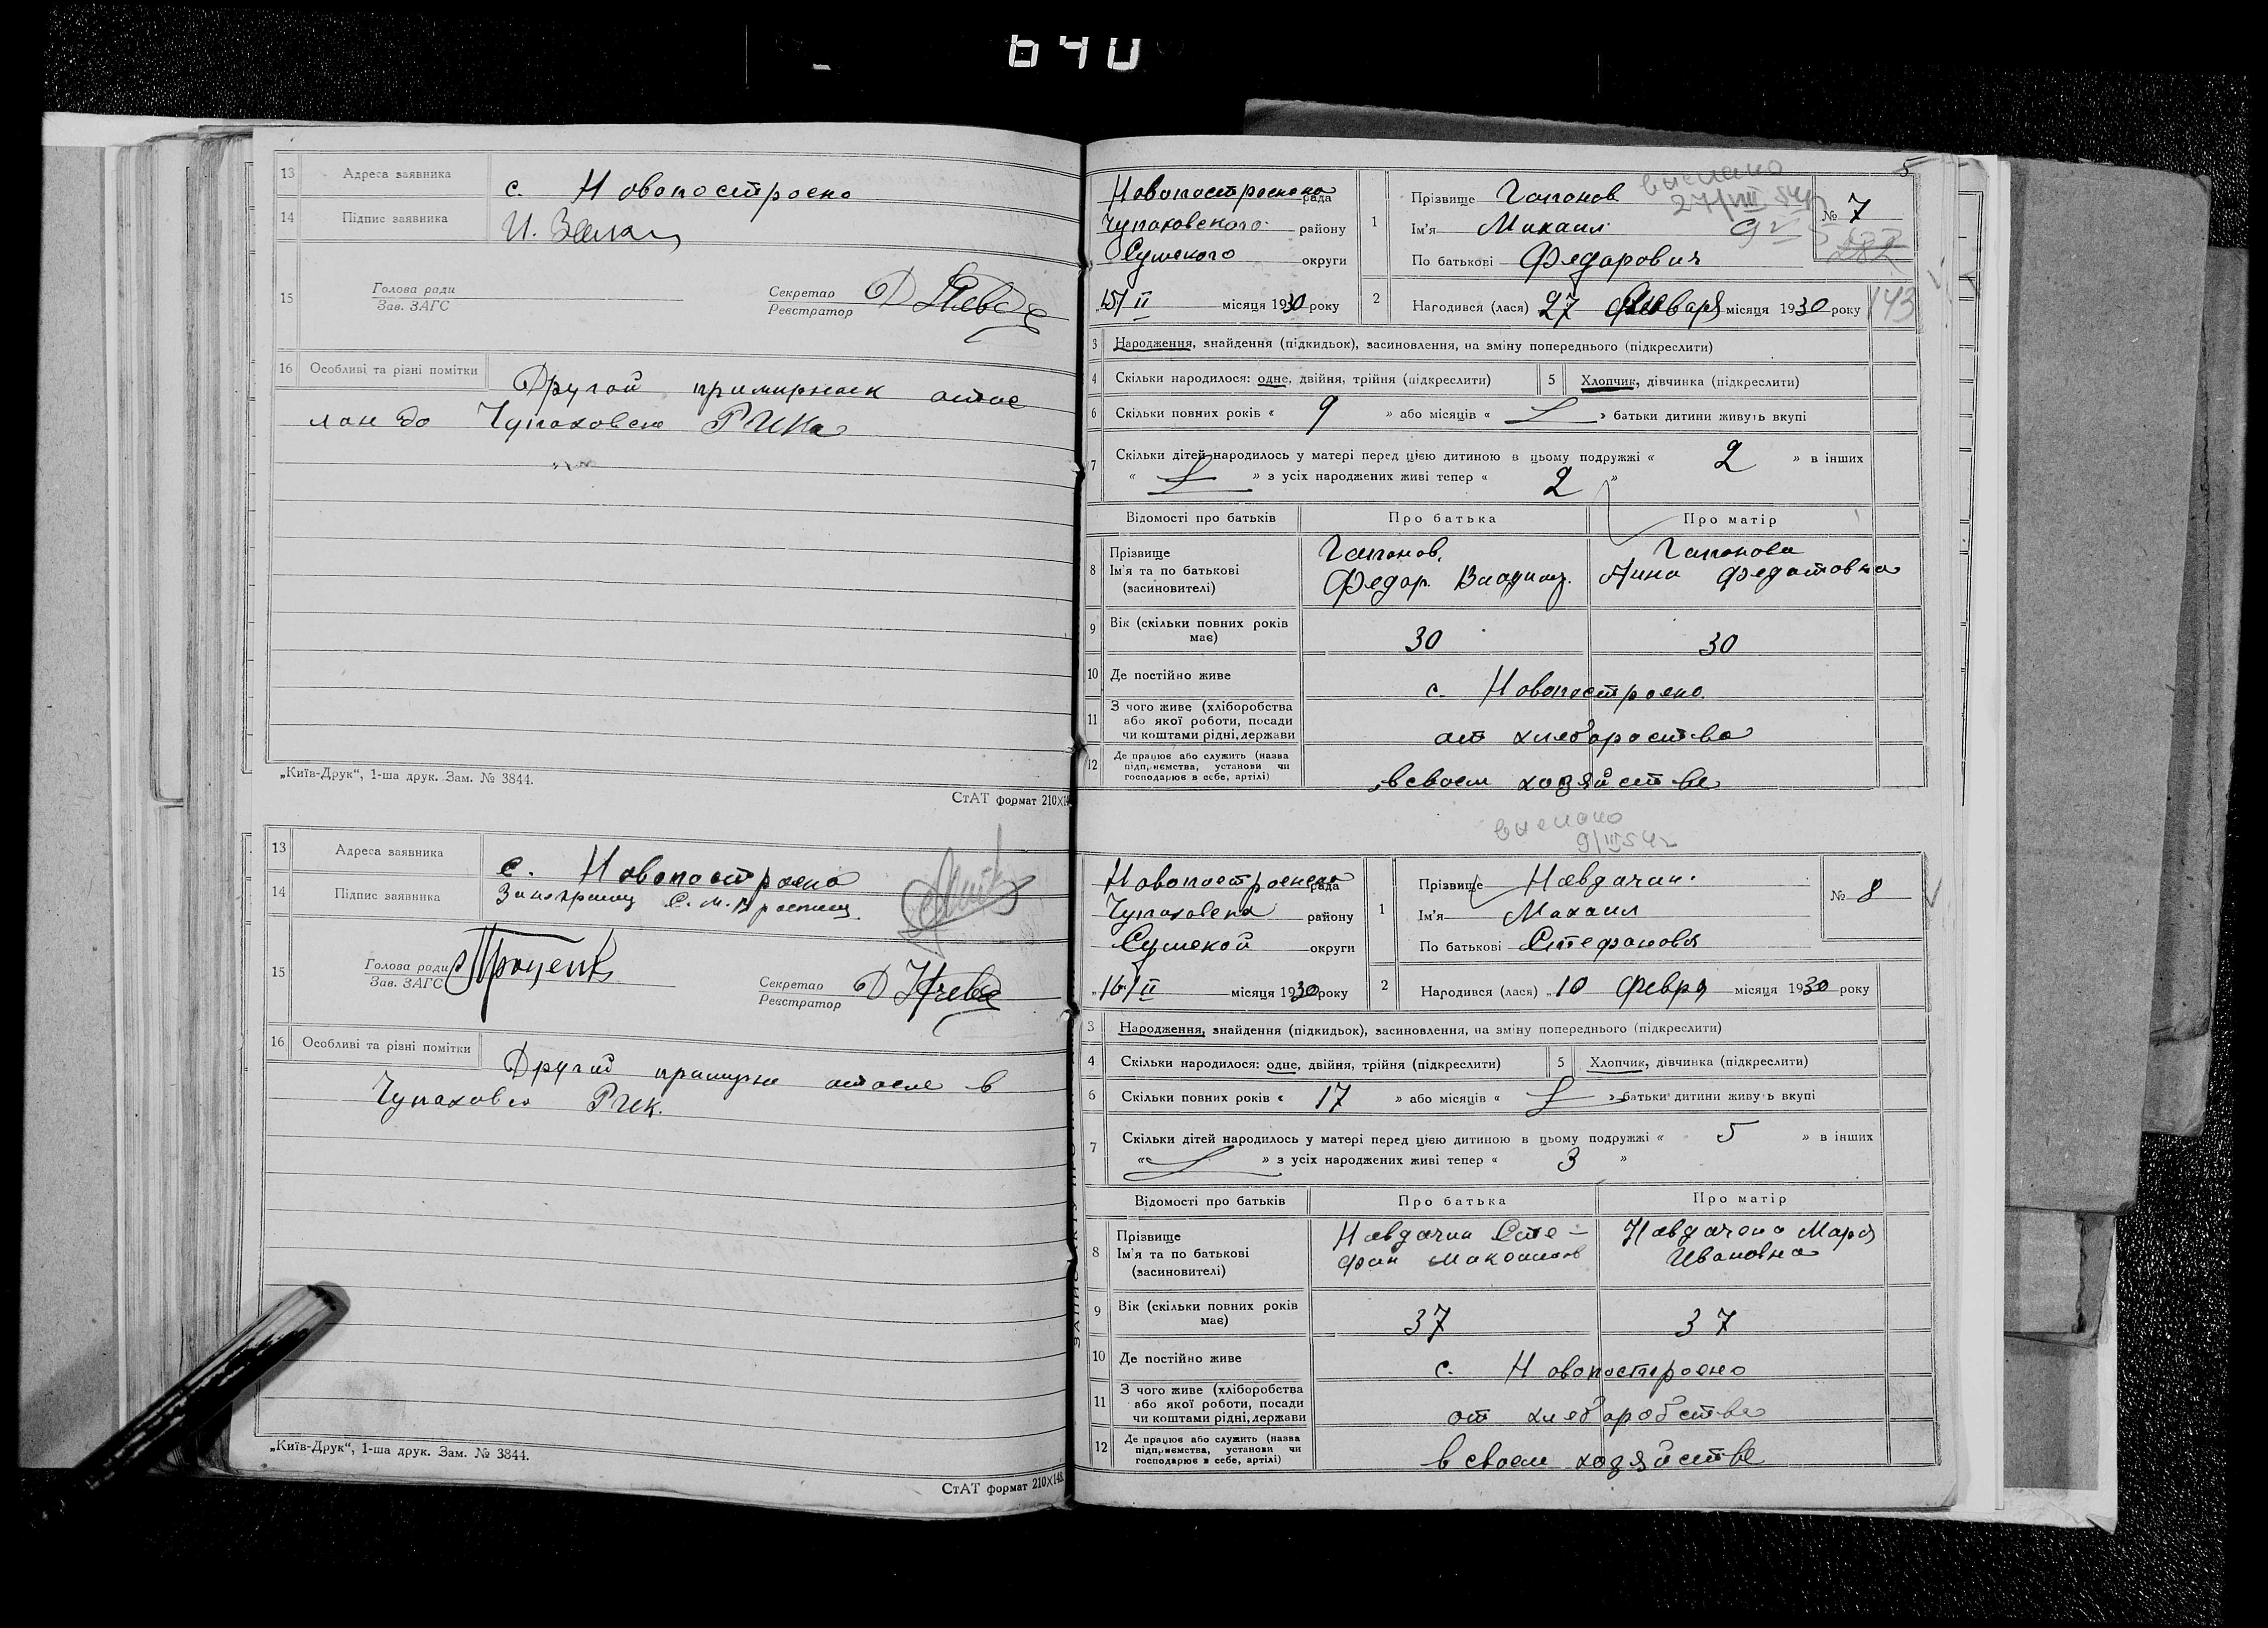 640
13 Адреса заявника с. Новопостроено
14 Підпис заявника И.
15 Голова ради
Зав. ЗАГС
Секретар
Реєстратор
16 Особливі та різні помітки Другой
до Чупаховско РИКа
„Київ-Друк“, 1-ша друк. Зам. № 3844.
СтАТ формат 210Х14
13 Адреса заявника с. Новопостроено
14 Підпис заявника
15 Голова ради
Зав. ЗАГС
Секретар
Реєстратор
16 Особливі та різні помітки Другий в
Чупаховск РИК.
„Київ-Друк“, 1-ша друк. Зам. № 3844.
СтАТ формат 210Х148
5
Новопостроенска рада
Чупаховского району
Сумского округи
15/II місяця 1930 року
1 Прізвище Гапонов
Ім'я Михаил
По батькові Федорович
№ 7
2 Народився (лася) 27 Января місяця 1930 року
143
3 Народження, знайдення (підкидьок), засиновлення, на зміну попереднього (підкреслити)
4 Скільки народилося: одне, двійня, трійня (підкреслити) 5 Хлопчик, дівчинка (підкреслити)
6 Скільки повних років « 9 » або місяців « » батьки дитини живуть вкупі
7 Скільки дітей народилось у матері перед цією дитиною в цьому подружжі « 2 » в інших
« » з усіх народжених живі тепер « 2 »
Відомості про батьків Про батька Про матір
8 Прізвище
Ім'я та по батькові
(засиновителі)
Гапонов
Федор. Владим.
Гапонова
Анна Федотовна
9 Вік (скільки повних років має) 30 30
10 Де постійно живе с. Новопостроено.
11 З чого живе (хліборобства
або якої роботи, посади
чи коштами рідні, держави
от хлеборобства
12 Де працює або служить (назва
підприємства, установи чи
господарює в себе, артілі)
в своем хозяйстве
9/III 54 г
Новопостроенска рада
Чупаховска району
Сумской округи
16/II місяця 1930 року
1 Прізвище Невдачин.
Ім'я Михаил
По батькові Стефанов
№ 8
2 Народився (лася) „10 Февра місяця 1930 року
3 Народження, знайдення (підкидьок), засиновлення, на зміну попереднього (підкреслити)
4 Скільки народилося: одне, двійня, трійня (підкреслити) 5 Хлопчик, дівчинка (підкреслити)
6 Скільки повних років « 17 » або місяців « » батьки дитини живуть вкупі
7 Скільки дітей народилось у матері перед цією дитиною в цьому подружжі « 5 » в інших
« » з усіх народжених живі тепер « 3 »
Відомості про батьків Про батька Про матір
8 Прізвище
Ім'я та по батькові
(засиновителі)
Невдачин Сте-
фан
Невдачена Мария
Ивановна
9 Вік (скільки повних років має) 37 37
10 Де постійно живе с. Новопостроено
11 З чого живе (хліборобства
або якої роботи, посади
чи коштами рідні, держави
от хлеборобства
12 Де працює або служить (назва
підприємства, установи чи
господарює в себе, артілі)
в своем хозяйстве